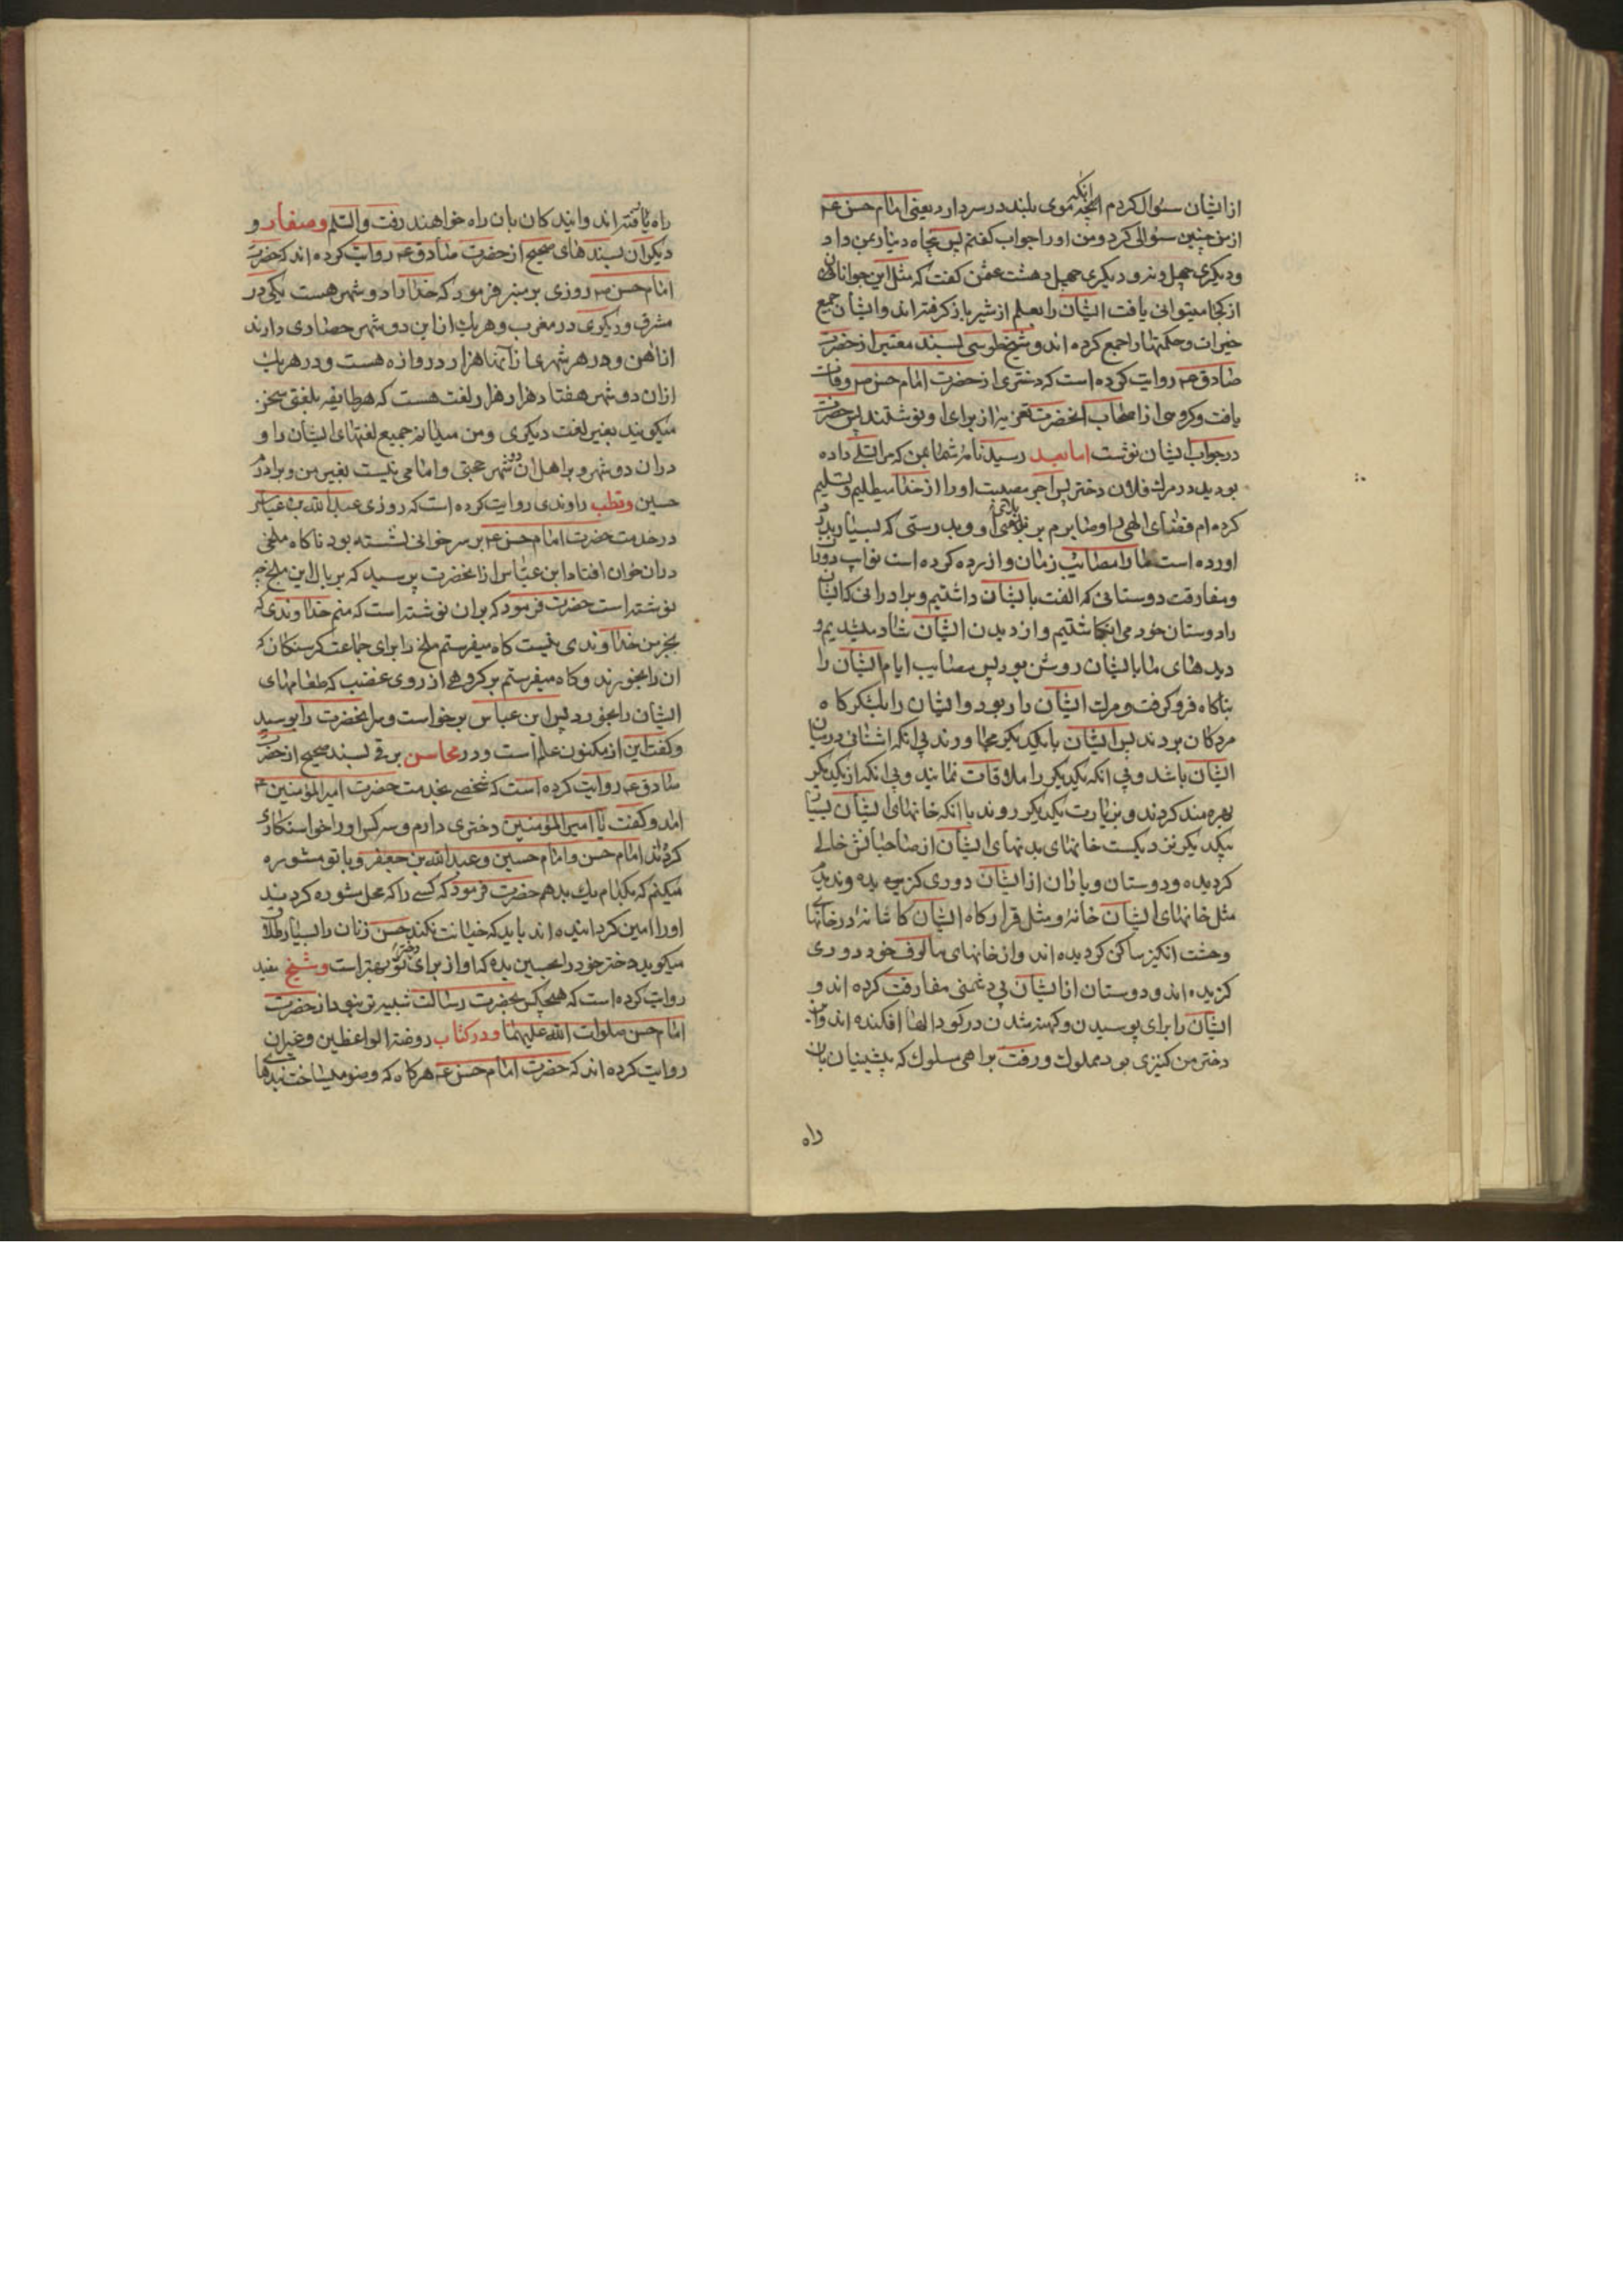 از ایشان سئوال کردم انکه موی بلند در سر دارد یعنی امام حسن ع
از من چنین سئوالی کرد و من او را جواب کفتم پس پنجاه دینار بمن داد
و دیکری چهل و نه و دیکری چهل و هشت عثمن کفت که مثل این جوانان
از کجا میتوانی یافت ایشان را بعلم از شیر باز کرفته اند و ایشان جمیع
خیرات و حکمتها را جمع کرده اند و شیخ طوسی بسند معتبر از حضرت
صادق ع روایت کرده است که دختری از حضرت امام حسن ع وفات
یافت و کروهی از اصحاب انحضرت تعزیه از برای او نوشتند پس حضرت
در جواب ایشان نوشت اما بعد رسید نامه شما بمن که مرا تسلی داده
بودید در مرک فلان دختر پس اجر مصیبت او را از خدا میطلبم و تسلیم
کرده ام قضای الهی را و صابرم بر بلای او و بدرستی که بسیار بدرد
اورده است ما را مصائب زمان و ازرده کرده است نوایب دوران
و مفارقت دوستانی که الفت با ایشان داشتیم و برادرانی که ایشان
را دوستان خود می انکاشتیم و از دیدن ایشان شاد میشدیم و
دیده های ما با ایشان روشن بود پس مصایب ایام ایشان را
بناکاه فرو کرفت و مرک ایشان را ربود و ایشان را بلشکر کاه
مردکان بردند پس ایشان با یکدیکر مجاورند بی انکه اشنائی در میان
ایشان باشد و بی انکه یکدیکر را ملاقات نمایند و بی انکه از یکدیکر
بهره مند کردند و بزیارت یکدیکر روند با انکه خانهای ایشان بسیار
بیکدیکر نزدیکست خانهای بدنهای ایشان از صاحبانش خالی
کردیده و دوستان و یاران از ایشان دوری کزیده و ندیدم
مثل خانهای ایشان خانهٔ و مثل قرارکاه ایشان کاشانهٔ در خانهای
وحشت انکیز ساکن کردیده اند و از خانهای مالوف خود دوری
کزیده اند و دوستان از ایشان بی دشمنی مفارقت کرده اند و
ایشان را برای پوسیدن و کهنه شدن در کودالها افکنده اند و این
دختر من کنیزی بود مملوک و رفت براهی مسلوک که پیشینیان بان
راه
راه یافته اند و ایندکان بان راه خواهند رفت والسلم و صفار و
دیکران بسندهای صحیح از حضرت صادق ع روایت کرده اند که حضرت
امام حسن ع روزی بر منبر فرمود که خدا را دو شهر هست یکی در
مشرق و دیکری در مغرب و هر یک از این دو شهر حصاری دارند
از اهن و در هر شهری از آنها هزار دروازه هست و در هر یک
از ان دو شهر هفتاد هزار هزار لغت هست که هر طایفه بلغتی سخن
میکویند بغیر لغت دیکری و من میدانم جمیع لغتهای ایشان را و
در ان دو شهر و بر اهل ان دو شهر حجتی و امامی نیست بغیر من و برادرم
حسین و قطب راوندی روایت کرده است که روزی عبدالله بن عباس
در خدمت حضرت امام حسن ع بر سر خوانی نشسته بود ناکاه ملخی
در ان خوان افتاد ابن عباس از انحضرت پرسید که بر بال این ملخ چه
نوشته است حضرت فرمود که بر ان نوشته است که منم خداوندی که
بجز من خداوندی نیست کاه میفرستم ملخ را برای جماعت کرسنکان که
ان را بخورند و کاه میفرستم بر کروهی از روی غضب که طعامهای
ایشان را بخورد پس ابن عباس برخواست و سر انحضرت را بوسید
و کفت این از مکنون علم است و در محاسن برقی بسند صحیح از حضرت
صادق ع روایت کرده است که شخصی بخدمت حضرت امیر المؤمنین ع
امد و کفت یا امیر المؤمنین دختری دارم و سه کس او را خواستکاری
کرده اند امام حسن و امام حسین و عبدالله بن جعفر و با تو مشوره
میکنم که بکدام یک بدهم حضرت فرمود که کسی را که محل مشوره کردید
او را امین کردانیده اند باید که خیانت نکند حسن زنان را بسیار طلاق
میکوید دختر خود را بحسین بده که او از برای دختر تو بهتر است و شیخ مفید
روایت کرده است که هیچکس بحضرت رسالت شبیه تر نبود از حضرت
امام حسن صلوات الله علیهما و در کتاب روضة الواعظین و غیر ان
روایت کرده اند که حضرت امام حسن ع هر کاه که وضو میساخت بندهای